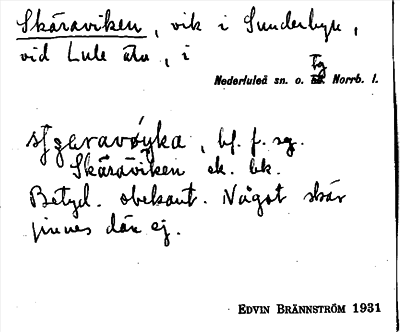 Skäraviken, vik i Sunderbyn,
vid Lule älv, i
Nederluleå sn. o. tg Norrb. l.
bf. f. sg.
Skäraviken ek. bk.
Betyd. obekant. Något skär
finnes där ej.
EDVIN BRÄNNSTRÖM 1931